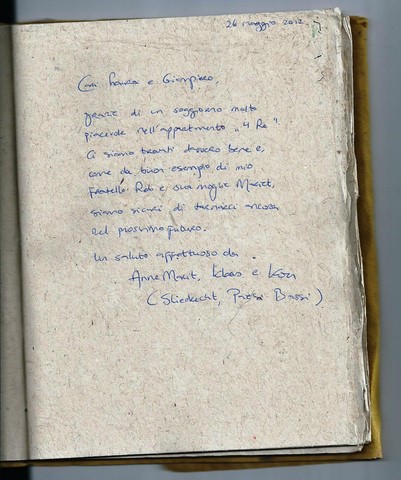 26 maggio 2012
Cari Laura e Giampiero,
grazie di un soggiorno molto
piacevole nell'appartamento "4 Re".
Ci siamo trovati davvero bene e,
come da buon esempio di mio
fratello Rob e sua moglie Margit,
siamo sicuri di tornarci ancora
nel prossimo futuro.
Un saluto affettuoso da
AnneMarit, Klaas e
(Sliedrecht, Paesi Bassi)